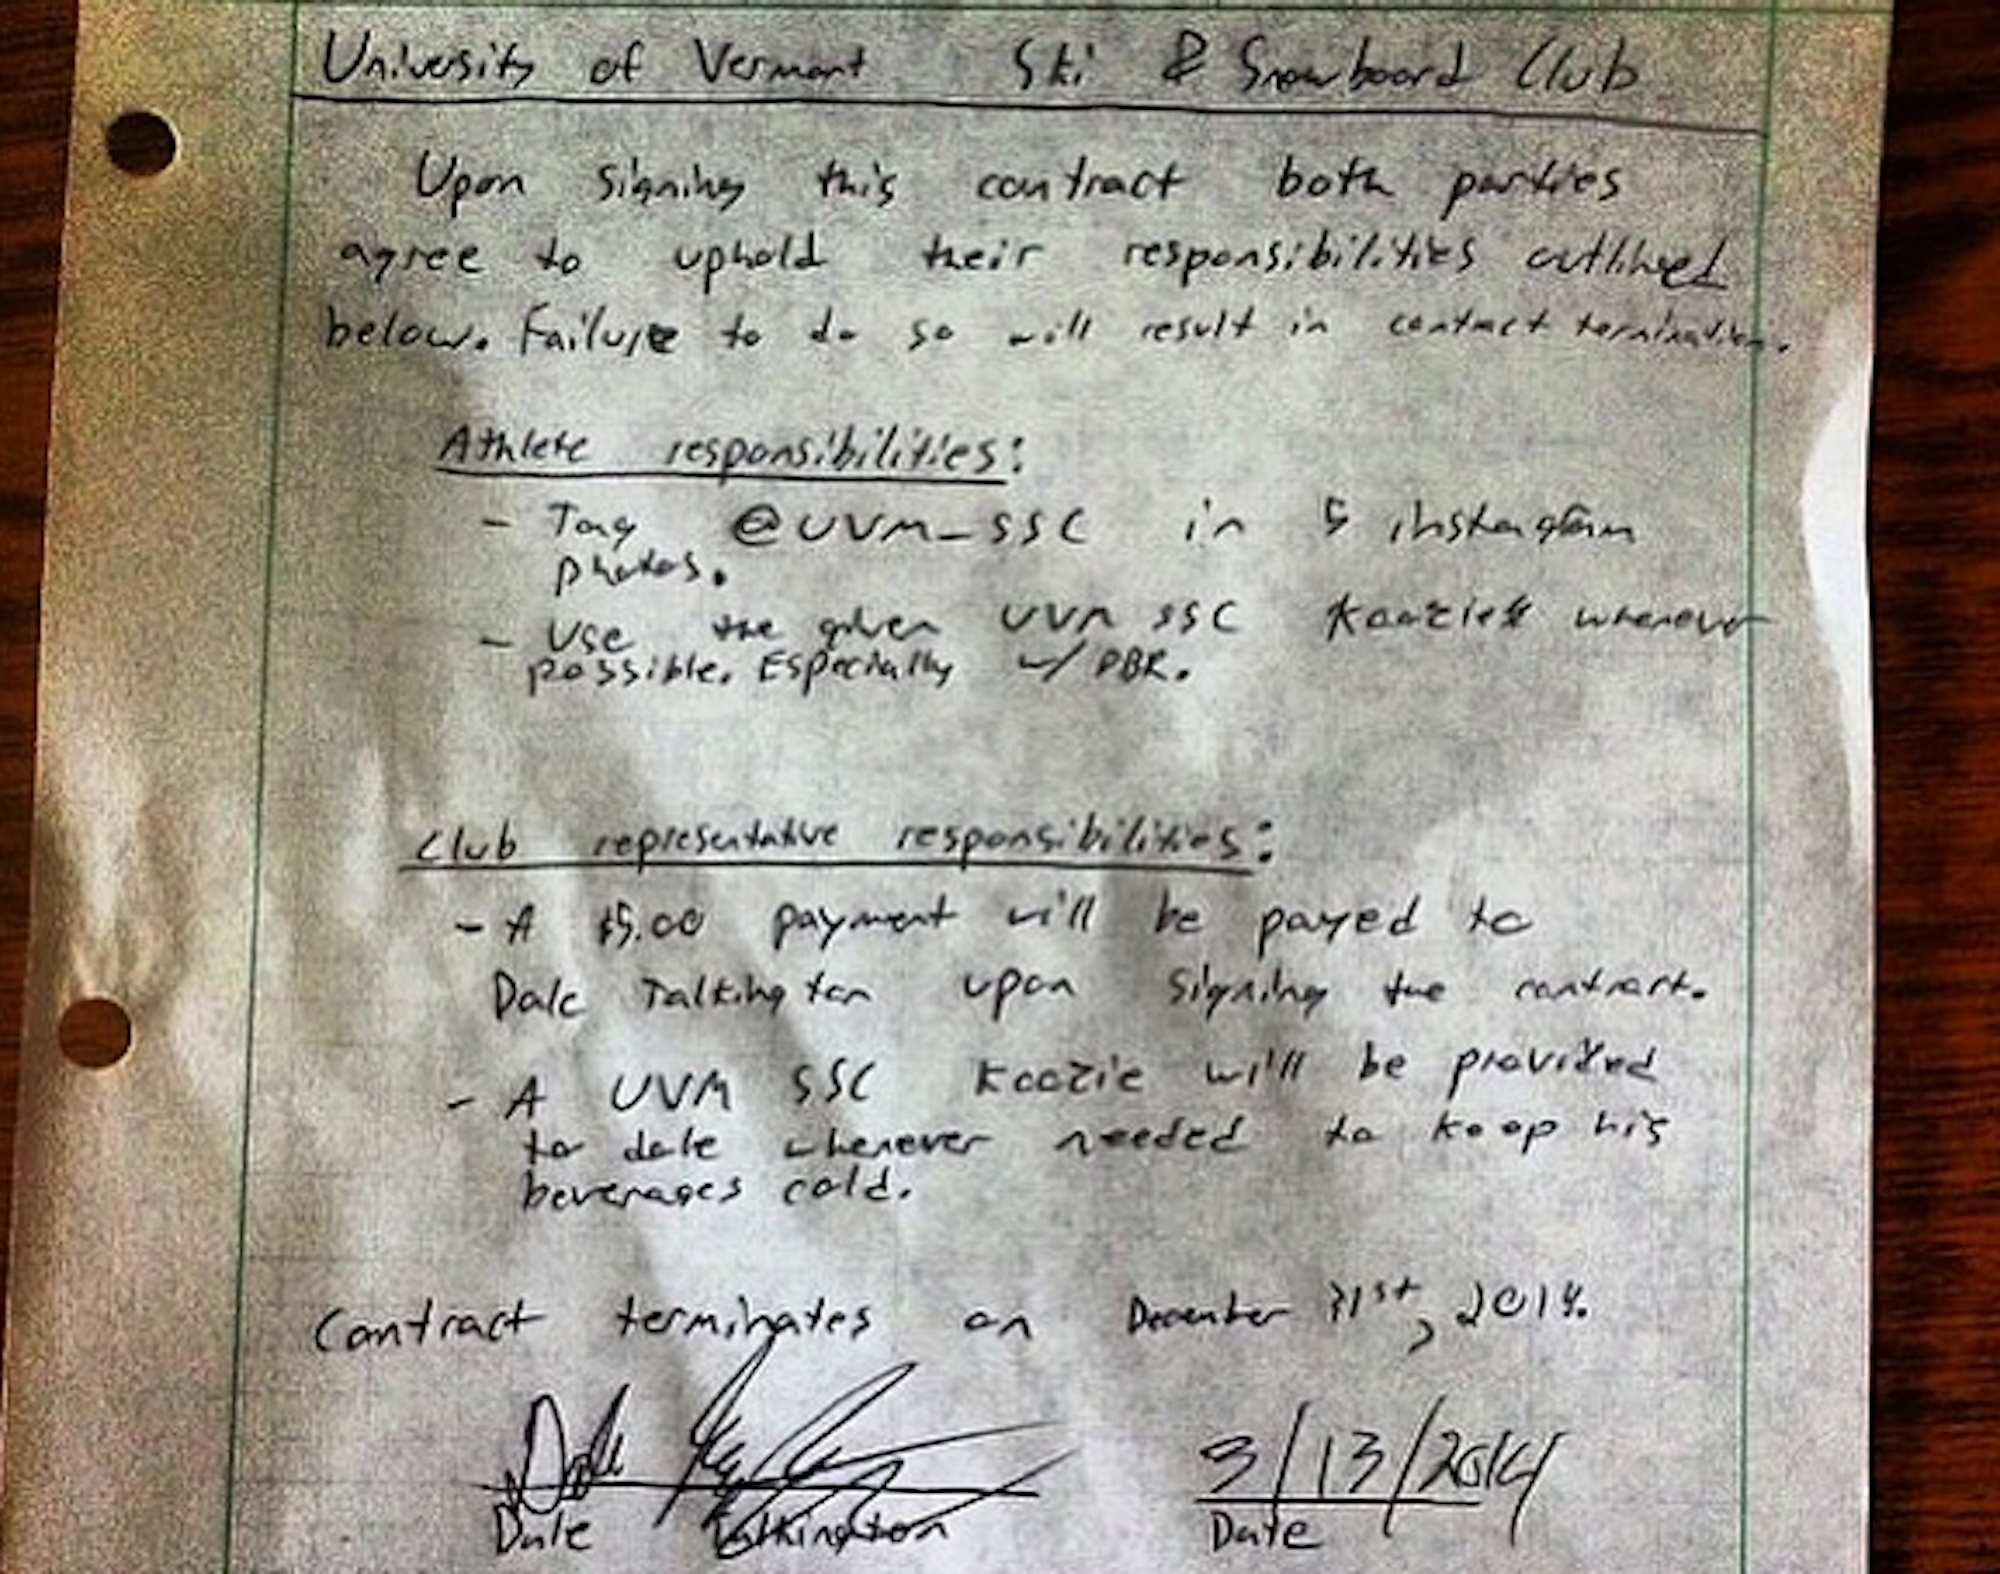 University of Vermont Ski & Snowboard Club
Upon signing this contract both parties
agree to uphold their responsibilities outlined
below. Failure to do so will result in contract termination.
Athlete responsibilities:
- Tag @UVM_SSC in 5 instagram
photos.
- Use the given UVM SSC Koozies whenever
possible. Especially w/ PBR.
Club representative responsibilities:
- A $5.00 payment will be payed to
Dale Talkington upon signing the contract.
- A UVM SSC Koozie will be provided
to dale whenever needed to keep his
beverages cold.
Contract terminates on December 31st, 2014.
Dale 3/13/2014
Dale Talkington Date